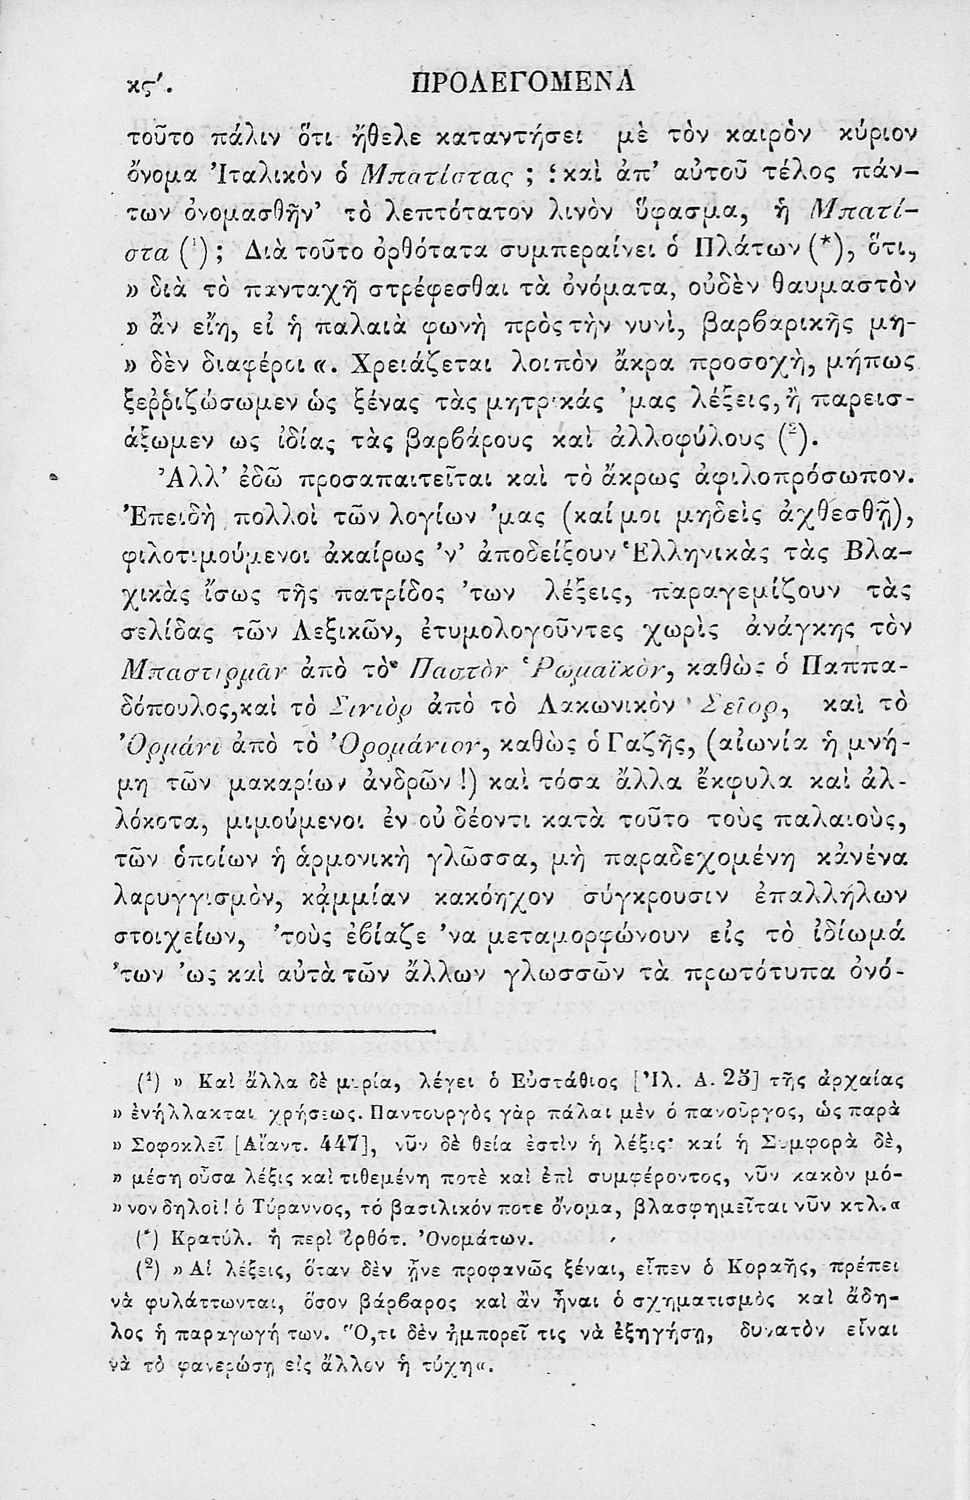 κϛ′.
ΠΡΟΛΕΓΟΜΕΝΑ
τοῦτο πάλιν ὅτι ἤθελε καταντήσει μὲ τὸν καιρὸν κύριον
ὄνομα Ἰταλικὸν ὁ Μπατίστας ; ἑ καὶ ἀπ’ αὐτοῦ τέλος πάν–
των ὀνομασθῆν’ τὸ λεπτότατον λινὸν ὕφασμα, ἡ Μπατί–
στα (¹) ; Διὰ τοῦτο ὀρθότατα συμπεραίνει ὁ Πλάτων (*), ὅτι,
» διὰ τὸ πανταχῆ στρέφεσθαι τὰ ὀνόματα, οὐδὲν θαυμαστὸν
» ἂν εἴη, εἰ ἡ παλαιὰ φωνὴ πρὸς τὴν νυνὶ, βαρβαρικῆς μη-
» δὲν διαφέροι «. Χρειάζεται λοιπὸν ἄκρα προσοχὴ, μήπως
ξεῤῥιζώσωμεν ὡς ξένας τὰς μητρικάς ’μας λέξεις, ἢ παρεισ-
άξωμεν ως ἰδίας τὰς βαρβάρους καὶ ἀλλοφύλους (²).
Ἀλλ’ ἐδῶ προσαπαιτεῖται καὶ τὸ ἄκρως ἀφιλοπρόσωπον.
Ἐπειδὴ πολλοὶ τῶν λογίων ’μας (καί μοι μηδεὶς ἀχθεσθῇ),
φιλοτιμούμενοι ἀκαίρως ’ν’ ἀποδείξουν Ἑλληνικὰς τὰς Βλα–
χικὰς ἴσως τῆς πατρίδος ’των λέξεις, παραγεμίζουν τὰς
σελίδας τῶν Λεξικῶν, ἐτυμολογοῦντες χωρὶς ἀνάγκης τὸν
Μπαστιρμᾶν ἀπὸ τὸ Παστὸν Ῥωμαϊκὸν, καθὼς ὁ Παππα-
δόπουλος, καὶ τὸ Σινιὸρ ἀπὸ τὸ Λακωνικὸν Σεῖορ, καὶ τὸ
Ὁρμάνι ἀπὸ τὸ Ὀρομάνιον, καθὼς ὁ Γαζῆς, (αἰωνία ἡ μνή-
μη τῶν μακαρίων ἀνδρῶν !) καὶ τόσα ἄλλα ἔκφυλα καὶ ἀλ-
λόκοτα, μιμούμενοι ἐν οὐ δέοντι κατὰ τοῦτο τοὺς παλαιοὺς,
τῶν ὁποίων ἡ ἁρμονικὴ γλῶσσα, μὴ παραδεχομένη κἀνένα
λαρυγγισμὸν, κἀμμίαν κακόηχον σύγκρουσιν ἐπαλλήλων
στοιχείων, ’τοὺς ἐβίαζε ’να μεταμορφώνουν εἰς τὸ ἰδίωμά
’των ’ως καὶ αὐτὰ τῶν ἄλλων γλωσσῶν τὰ πρωτότυπα ὀνό-
(¹) » Καὶ ἄλλα δὲ μυρία, λέγει ὁ Εὐστάθιος [Ἰλ. Α. 25] τῆς ἀρχαίας
» ἐνήλλακται χρήσεως. Παντουργὸς γὰρ πάλαι μὲν ὁ πανοῦργος, ὡς παρὰ
» Σοφοκλεῖ [Αἴαντ. 447], νῦν δὲ θεία ἐστὶν ἡ λέξις· καί ἡ Συμφορὰ δὲ,
» μέση οὖσα λέξις καὶ τιθεμένη ποτὲ καὶ ἐπὶ συμφέροντος, νῦν κακὸν μό-
» νον δηλοῖ ! ὁ Τύραννος, τό βασιλικόν ποτε ὄνομα, βλασφημεῖται νῦν κτλ. «
(*) Κρατύλ. ἢ περὶ Ὀρθότ. Ὀνομάτων.
(²) » Αἱ λέξεις, ὅταν δὲν ᾖνε προφανῶς ξέναι, εἶπεν ὁ Κοραῆς, πρέπει
νὰ φυλάττωνται, ὅσον βάρβαρος καὶ ἂν ἦναι ὁ σχηματισμὸς καὶ ἄδη–
λος ἡ παραγωγή των. Ὅ,τι δὲν ἠμπορεῖ τις νὰ ἐξηγήσῃ, δυνατὸν εἶναι
νὰ τὸ φανερώσῃ εἰς ἄλλον ἡ τύχη «.